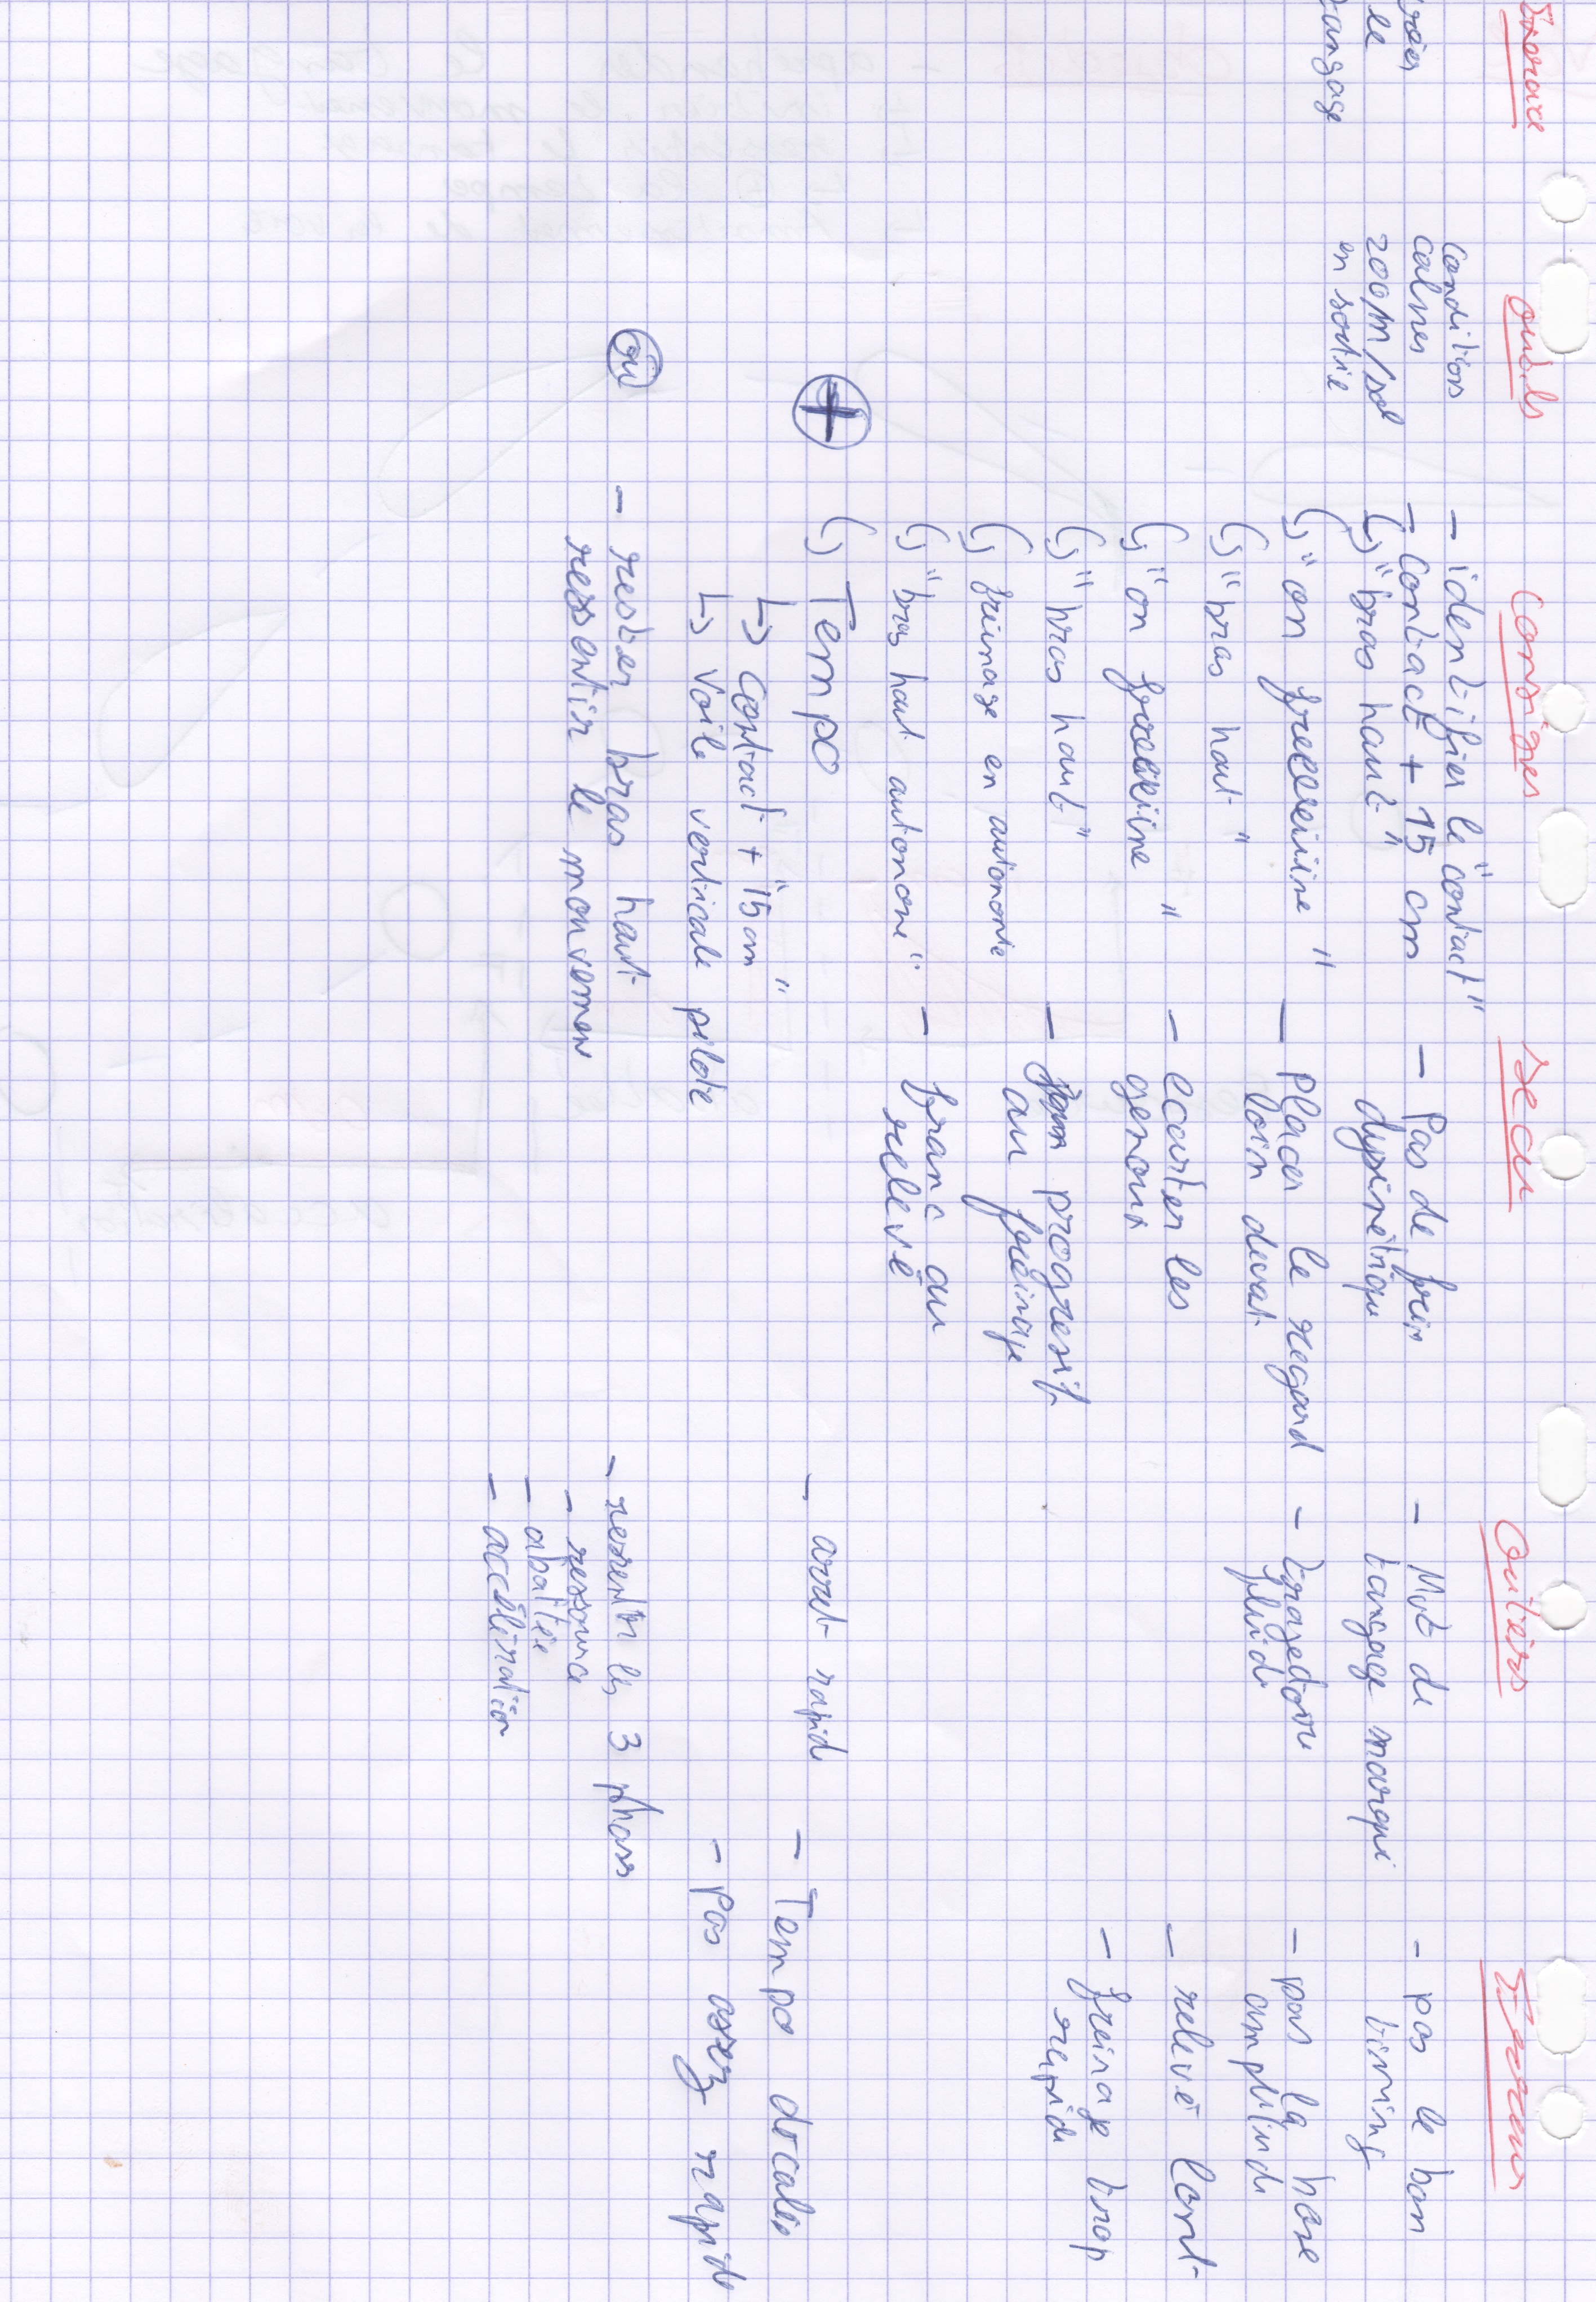 Exercice
créer
le
tangage
outils
conditions
calmes
200m/sol
en sortie
Consignes
- identifier le "contact"
- contact + 15 cm
↳ "bras haut"
↳ "on freeeeiiine"
↳ "bras haut"
↳ "on freeeiiine"
↳ "bras haut"
↳ freinage en autonomie
↳ "bras haut autonome"
+
↳ Tempo
↳ contact + "15 cm"
↳ voile verticale pilote
ou
- rester bras haut
ressentir le mouvement
Secu
- Pas de frein
dysimétrique
- placer le regard
loin devant
- ecarter les
genoux
- progressif
au freinage
- franc au
relevé
Critères
- Mvt de
tangage marqué
- trajectoire
fluide
- arret rapid
- ressentir les 3 phases
- ressource
- abattée
- accélération
Erreurs
- pas le bon
timing
- pas la bone
amplitude
- relevé lent
- freinage trop
rapide
- Tempo décalée
- pas assez rapide